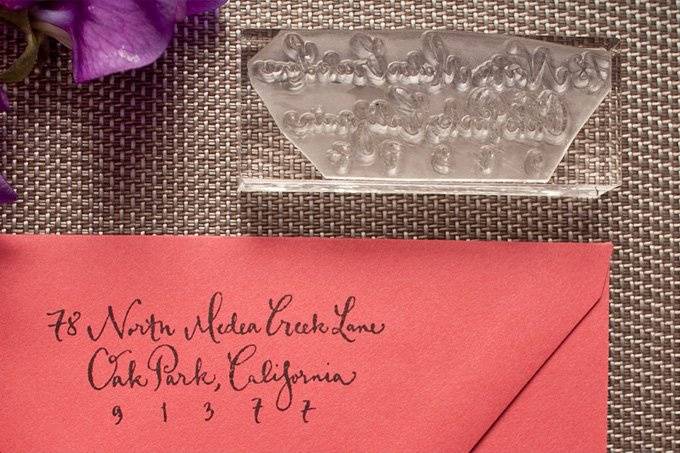 78 North Medea Creek Lane
Oak Park, California
9 1 3 7 7